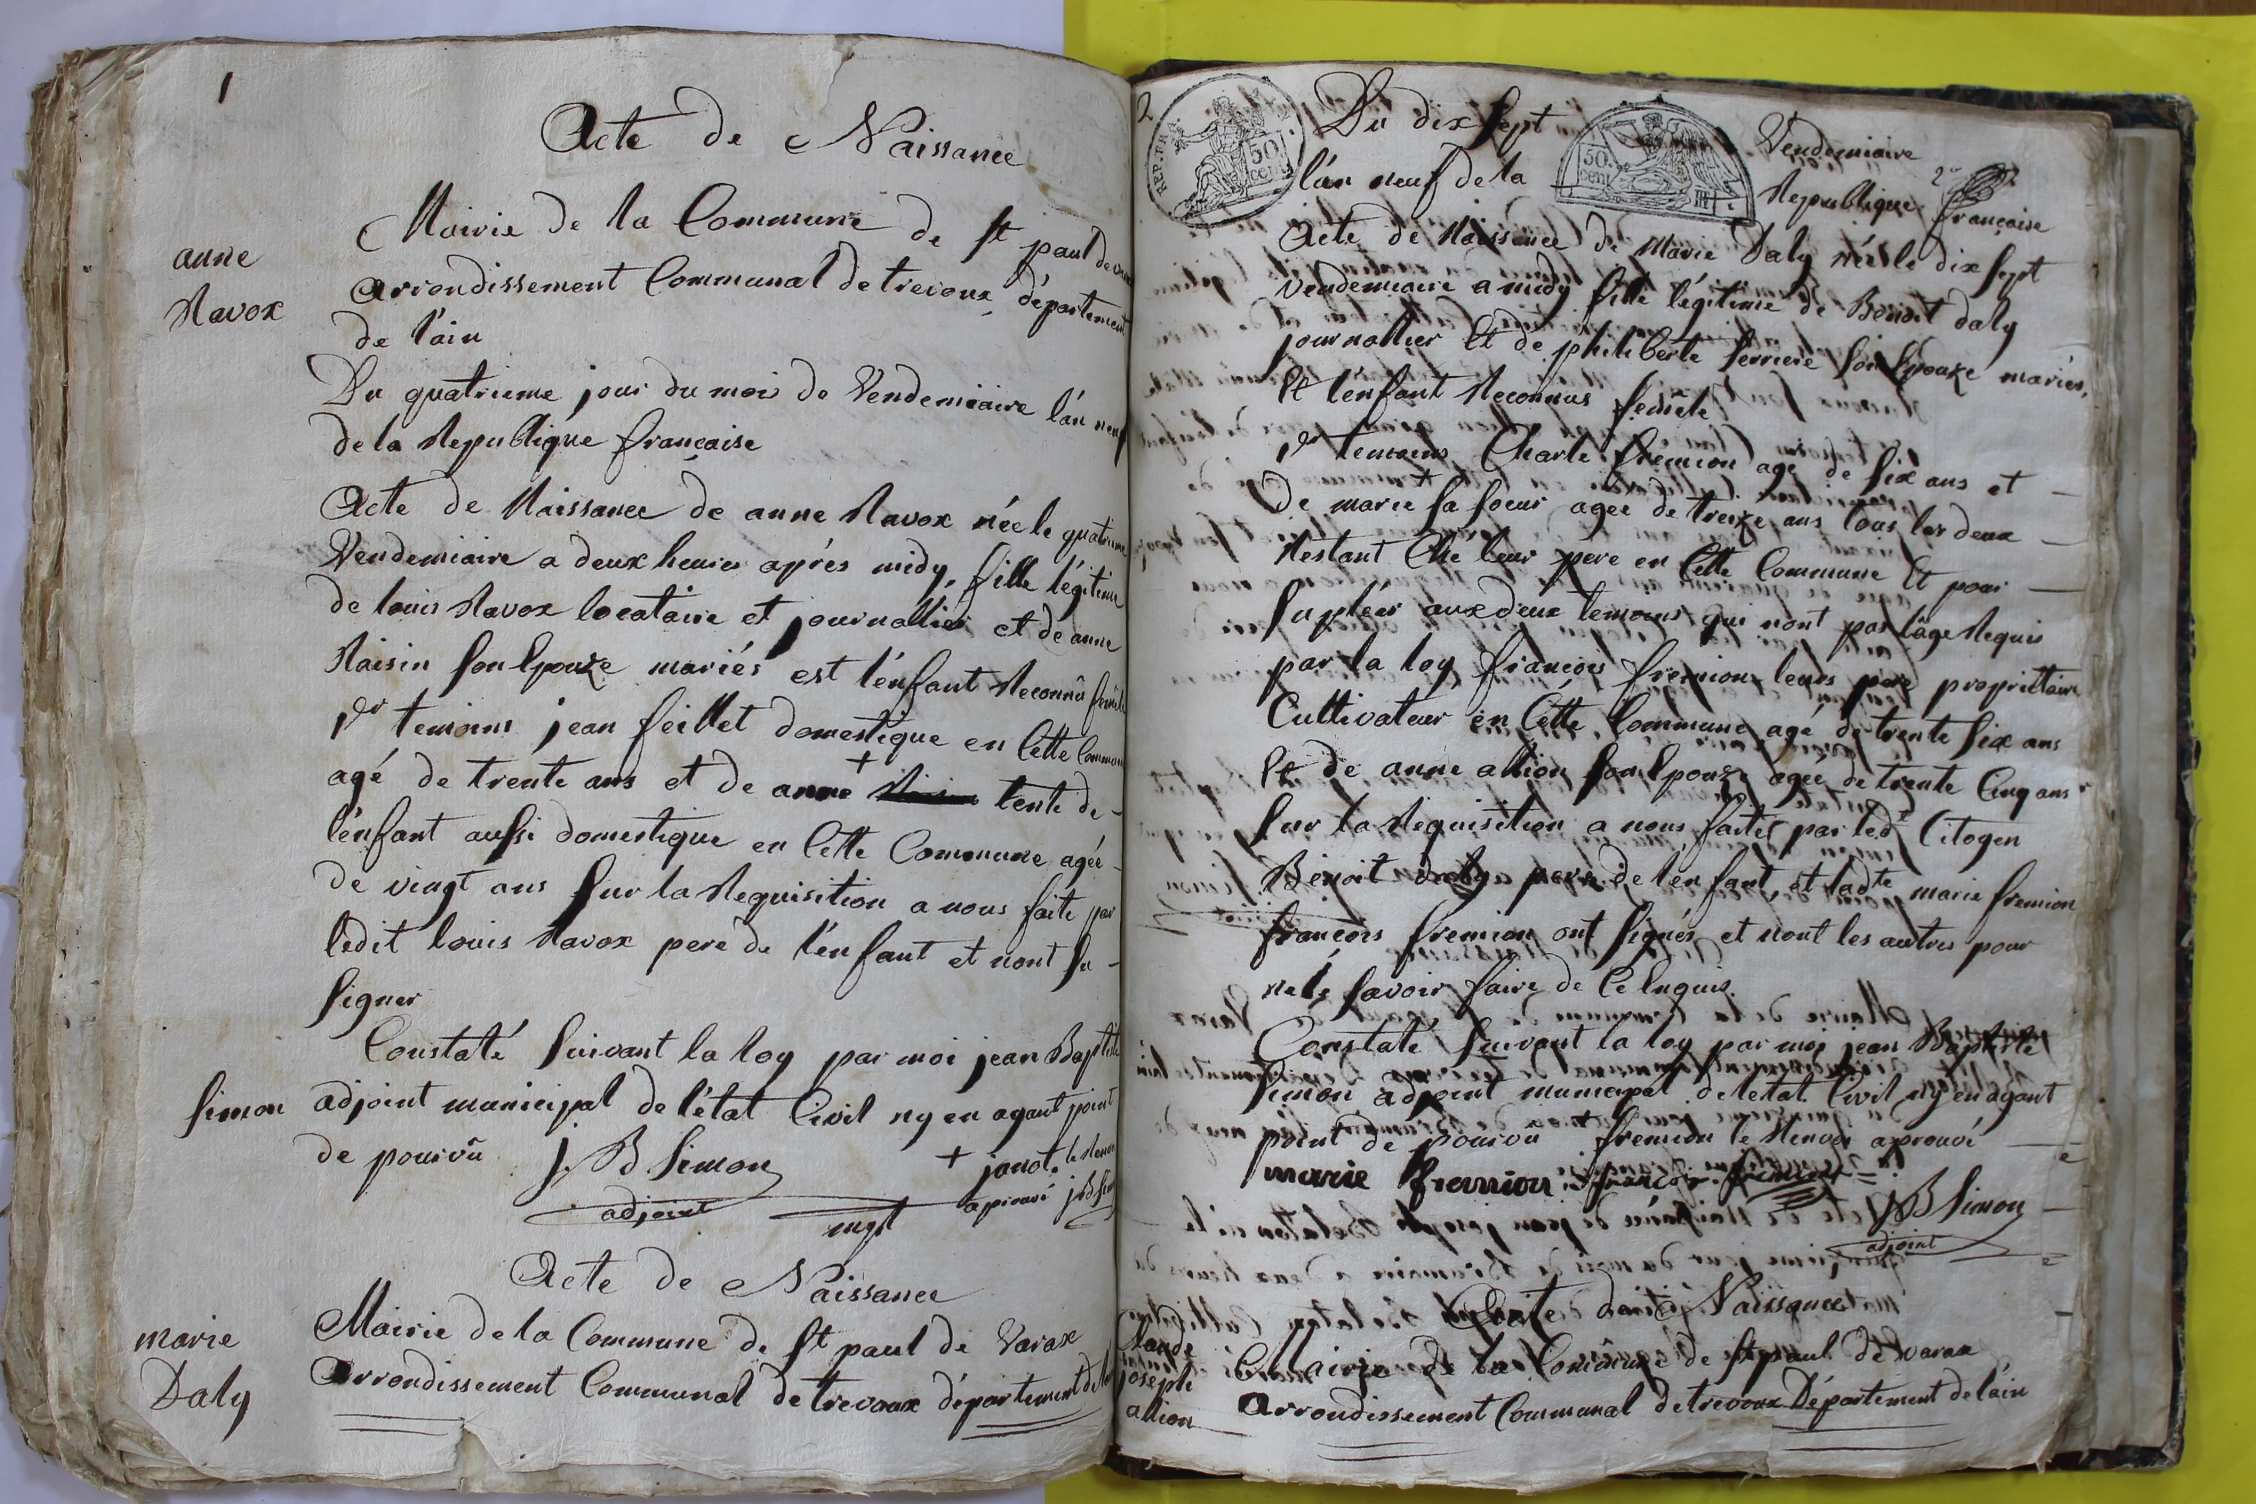 1
Acte de Naissance
anne
Ravox
Mairie de la Commune de st paul de
arrondissement Communal de trevoux département
de l'ain
Du quatrieme jour du mois de Vendemiaire l'an neuf
de la Republique française
Acte de Naissance de anne Ravox née le quatrieme
Vendemiaire a deux heures aprés midy, fille légitime
de louis Ravox locataire et journallier et de anne
Raisin son Epouze mariés est l'énfant Reconnû femele
1er temoins jean feillet domestique en Cette Commune
agé de trente ans et de anne + tente de
l'énfant aussi domestique en Cette Commune agée
de vingt ans sur la Requisition a nous faite par
ledit louis Ravox pere de l'énfant et nont su
signer
Constaté suivant la loy par moi jean Baptiste
simon adjoint municipal de l'état Civil ny en ayant point
de pourvû
J. B Simon
adjoint
mgl
+ janot. le Renvoi
aprouvé JB Simon
Acte de Naissance
marie
Daly
Mairie de la Commune de st paul de Varax
Arrondissement Communal de trevoux département de l'ain
2
REP. FRA.
50 cent.
Du dix sept Vendemiaire
50 cent
l'an neuf de la Republique française
Acte de Naissance de Marie Daly née le dix sept
Vendemiaire a midy fille légitime de Benoit daly
journallier Et de philiberte ferriere son Epouze mariés,
Et l'enfant Reconnus femele
1er temoins Charle fremion agé de six ans et
de marie sa soeur agee de treize ans tous les deux
Restant Ché leur pere en Cette Commune Et pour
supléer aux deux temoins qui nont pas l'age Requis
par la loy françois fremion leurs pere propriettaire
Cultivateur en Cette Commune agé de trente six ans
Et de anne allion son Epouze agée de trente Cinq ans
sur la Requisition a nous faites par ledt Citoyen
Benoit daly pere de l'énfant, et ladte marie fremion
françois fremion ont signés et nont les autres pour
ne le savoir faire de Ce Enquis.
Constaté suivant la loy par moi jean Baptiste
simon adjoint municipal de letat Civil ny en ayant
point de pourvu fremion le Renvoi aprouvé
marie fremion françois fremion
JB Simon
adjoint
Acte de Naissance
Claude
joseph
allion
Mairie de la Commune de st paul de varax
Arrondissement Communal de trevoux Département de l'ain